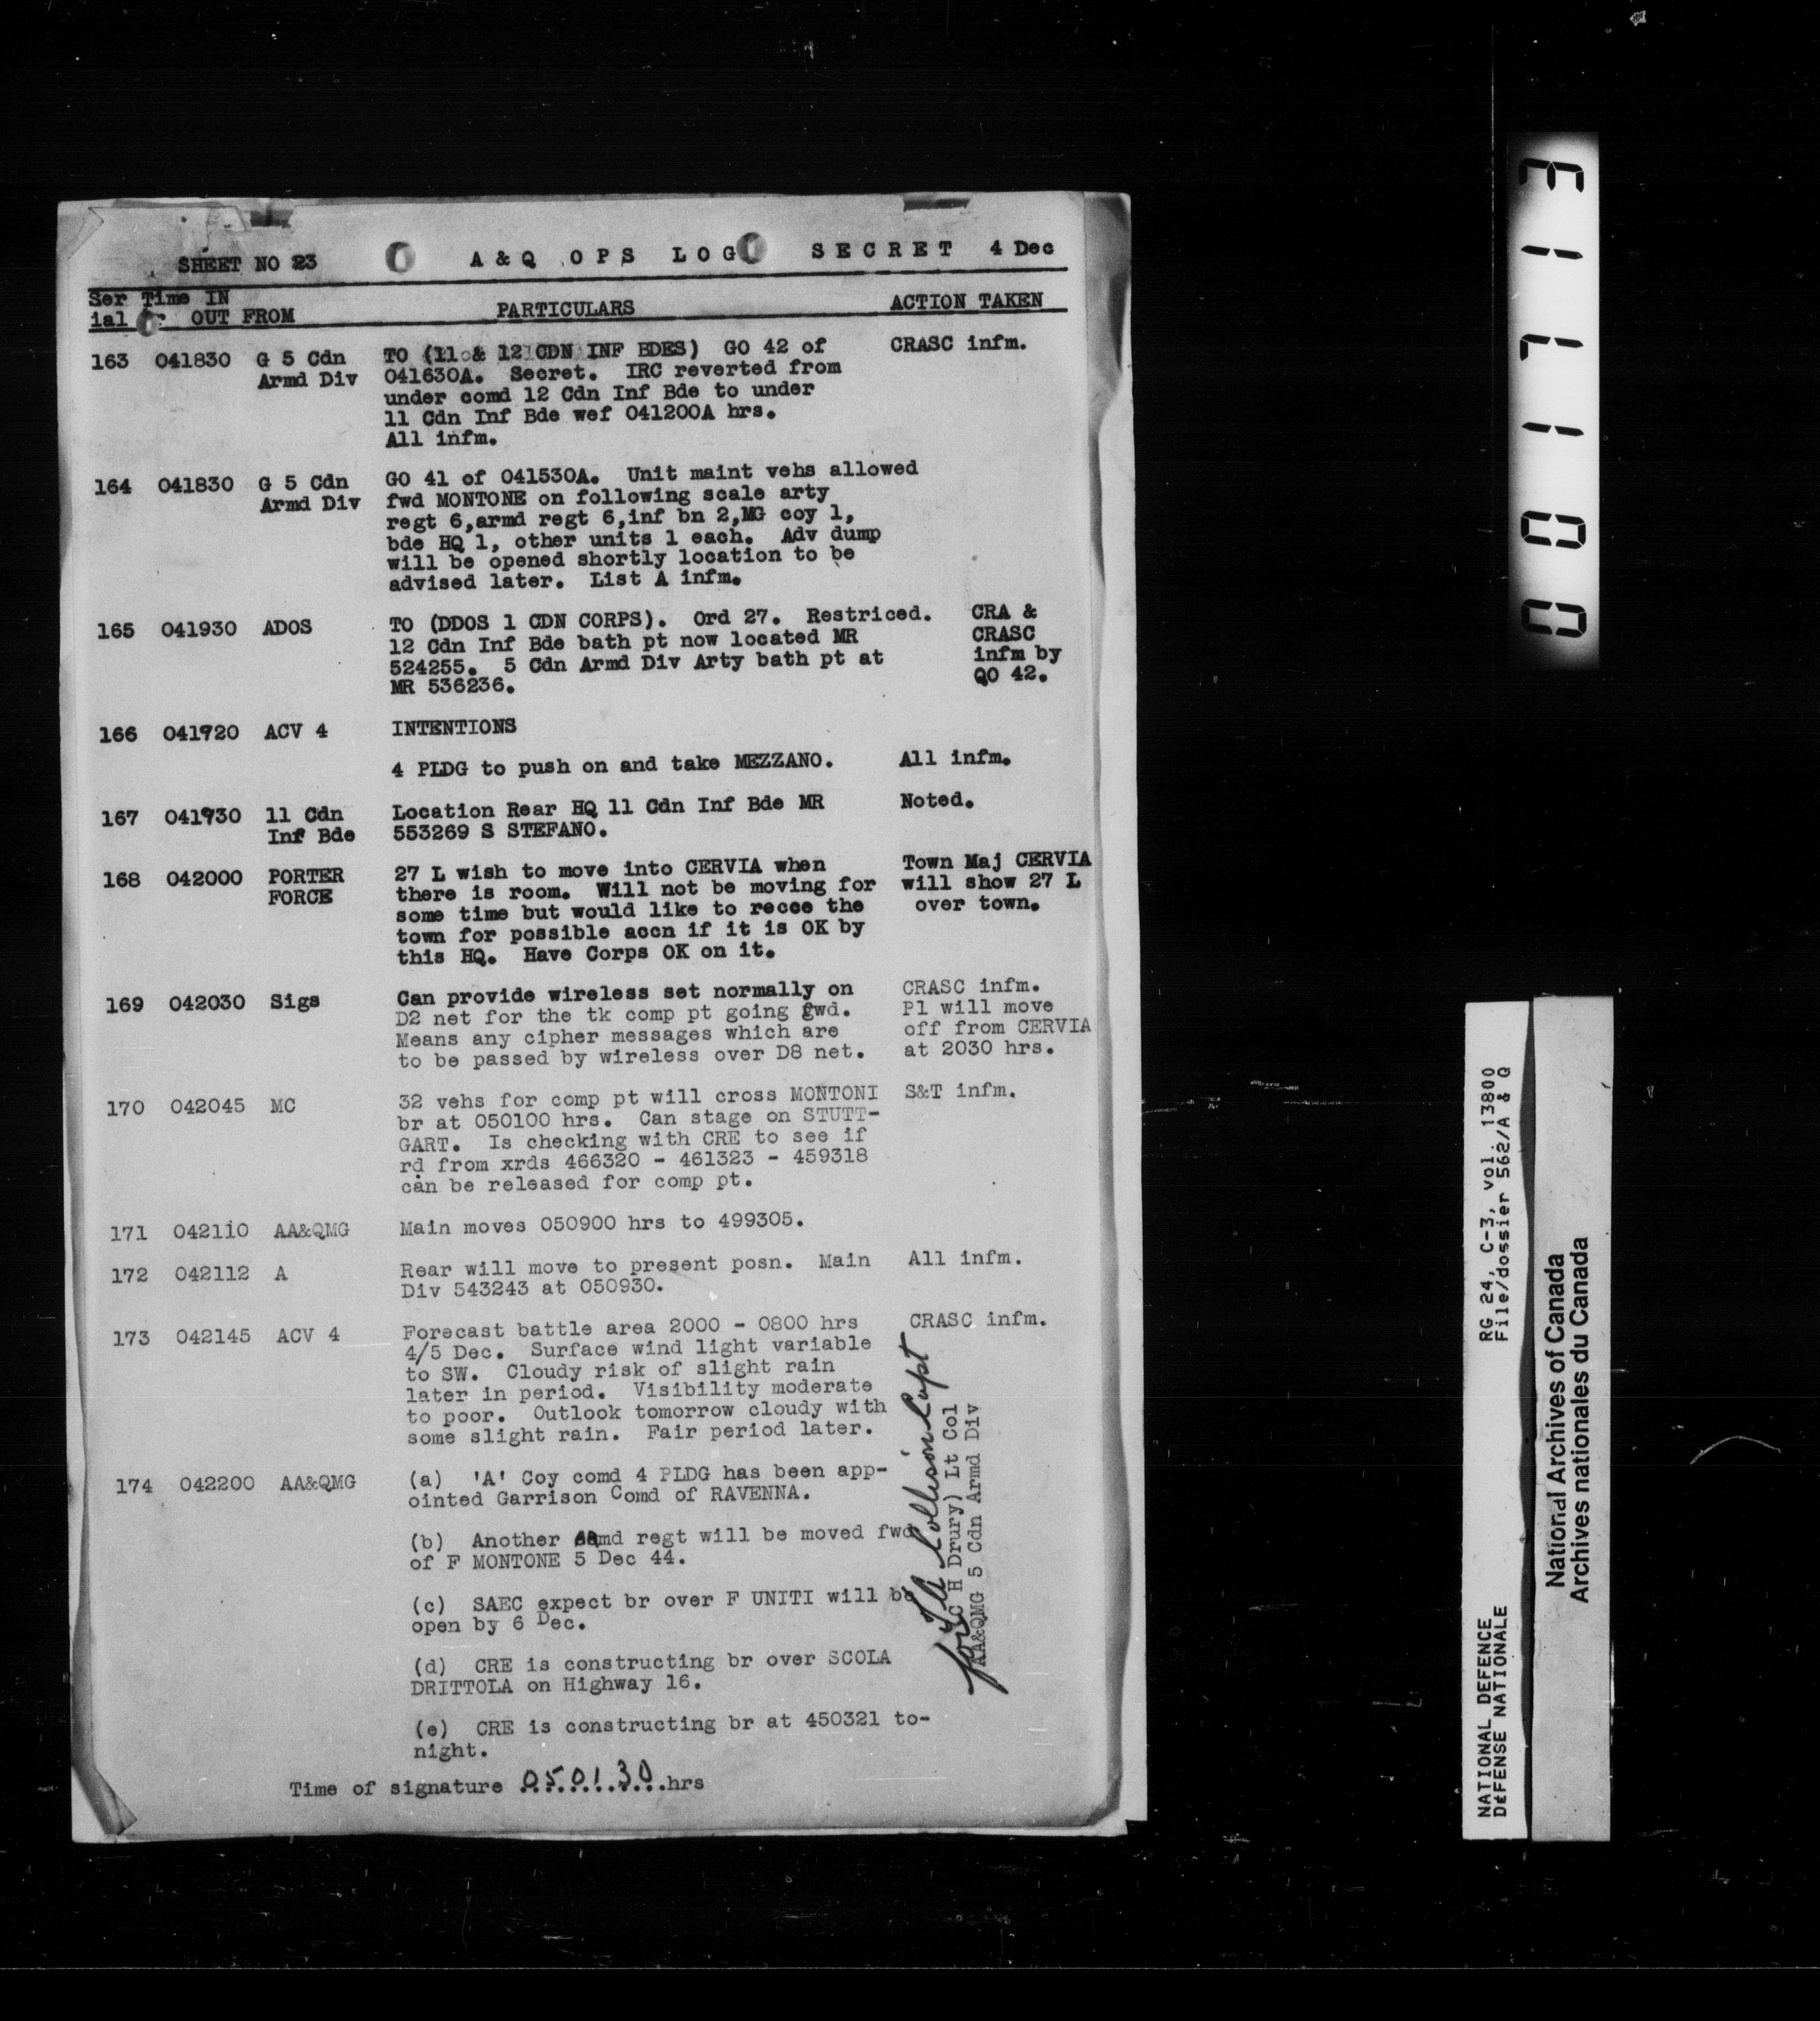 SHEET NO 23 A & Q OPS LOG SECRET 4 Dec
Ser Time IN
ial or OUT FROM PARTICULARS ACTION TAKEN
163 041830 G 5 Cdn TO (11 & 12 CDN INF BDES) GO 42 of CRASC infm.
Armd Div 041630A. Secret. IRC reverted from
under comd 12 Cdn Inf Bde to under
11 Cdn Inf Bde wef 041200A hrs.
All infm.
164 041830 G 5 Cdn GO 41 of 041530A. Unit maint vehs allowed
Armd Div fwd MONTONE on following scale arty
regt 6,armd regt 6,inf bn 2,MG coy 1,
bde HQ 1, other units 1 each. Adv dump
will be opened shortly location to be
advised later. List A infm.
165 041930 ADOS TO (DDOS 1 CDN CORPS). Ord 27. Restriced. CRA &
12 Cdn Inf Bde bath pt now located MR CRASC
524255. 5 Cdn Armd Div Arty bath pt at infm by
MR 536236. QO 42.
166 041920 ACV 4 INTENTIONS
4 PLDG to push on and take MEZZANO. All infm.
167 041930 11 Cdn Location Rear HQ 11 Cdn Inf Bde MR Noted.
Inf Bde 553269 S STEFANO.
168 042000 PORTER 27 L wish to move into CERVIA when Town Maj CERVIA
FORCE there is room. Will not be moving for will show 27 L
some time but would like to recce the over town.
town for possible accn if it is OK by
this HQ. Have Corps OK on it.
169 042030 Sigs Can provide wireless set normally on CRASC infm.
D2 net for the tk comp pt going fwd. Pl will move
Means any cipher messages which are off from CERVIA
to be passed by wireless over D8 net. at 2030 hrs.
170 042045 MC 32 vehs for comp pt will cross MONTONI S&T infm.
br at 050100 hrs. Can stage on STUTT-
GART. Is checking with CRE to see if
rd from xrds 466320 - 461323 - 459318
can be released for comp pt.
171 042110 AA&QMG Main moves 050900 hrs to 499305.
172 042112 A Rear will move to present posn. Main All infm.
Div 543243 at 050930.
173 042145 ACV 4 Forecast battle area 2000 - 0800 hrs CRASC infm.
4/5 Dec. Surface wind light variable
to SW. Cloudy risk of slight rain
later in period. Visibility moderate
to poor. Outlook tomorrow cloudy with
some slight rain. Fair period later.
174 042200 AA&QMG (a) 'A' Coy comd 4 PLDG has been app-
ointed Garrison Comd of RAVENNA.
(b) Another armd regt will be moved fwd
of F MONTONE 5 Dec 44.
(c) SAEC expect br over F UNITI will be
open by 6 Dec.
(d) CRE is constructing br over SCOLA
DRITTOLA on Highway 16.
(e) CRE is constructing br at 450321 to-
night.
Time of signature 050130 hrs
Capt
C H Drury) Lt Col
AA&QMG 5 Cdn Armd Div
001713
RG 24, C-3, vol. 13800
File/dossier 562/A & Q
NATIONAL DEFENCE
DÉFENSE NATIONALE
National Archives of Canada
Archives nationales du Canada